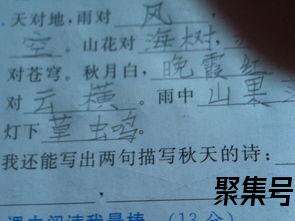 天对地，雨对风，
空。山花对海树，
对苍穹。秋月白，晚霞红
对云横。雨中山果
灯下草虫鸣。
我还能写出两句描写秋天的诗：
，
聚集号